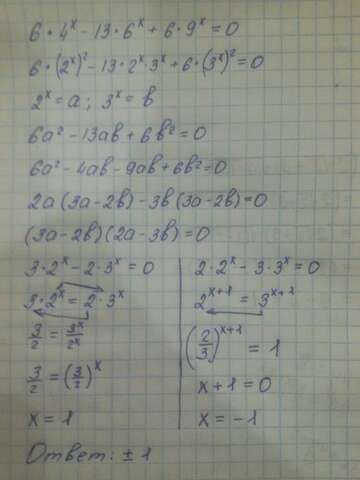 6·4ˣ - 13·6ˣ + 6·9ˣ = 0
6·(2ˣ)² - 13·2ˣ·3ˣ + 6·(3ˣ)² = 0
2ˣ = a ; 3ˣ = b
6a² - 13ab + 6b² = 0
6a² - 4ab - 9ab + 6b² = 0
2a(3a - 2b) - 3b(3a - 2b) = 0
(3a - 2b)(2a - 3b) = 0
3·2ˣ - 2·3ˣ = 0
3·2ˣ = 2·3ˣ
3/2 = 3ˣ/2ˣ
3/2 = (3/2)ˣ
x = 1
2·2ˣ - 3·3ˣ = 0
2ˣ⁺¹ = 3ˣ⁺¹
(2/3)ˣ⁺¹ = 1
x + 1 = 0
x = -1
Ответ: ± 1